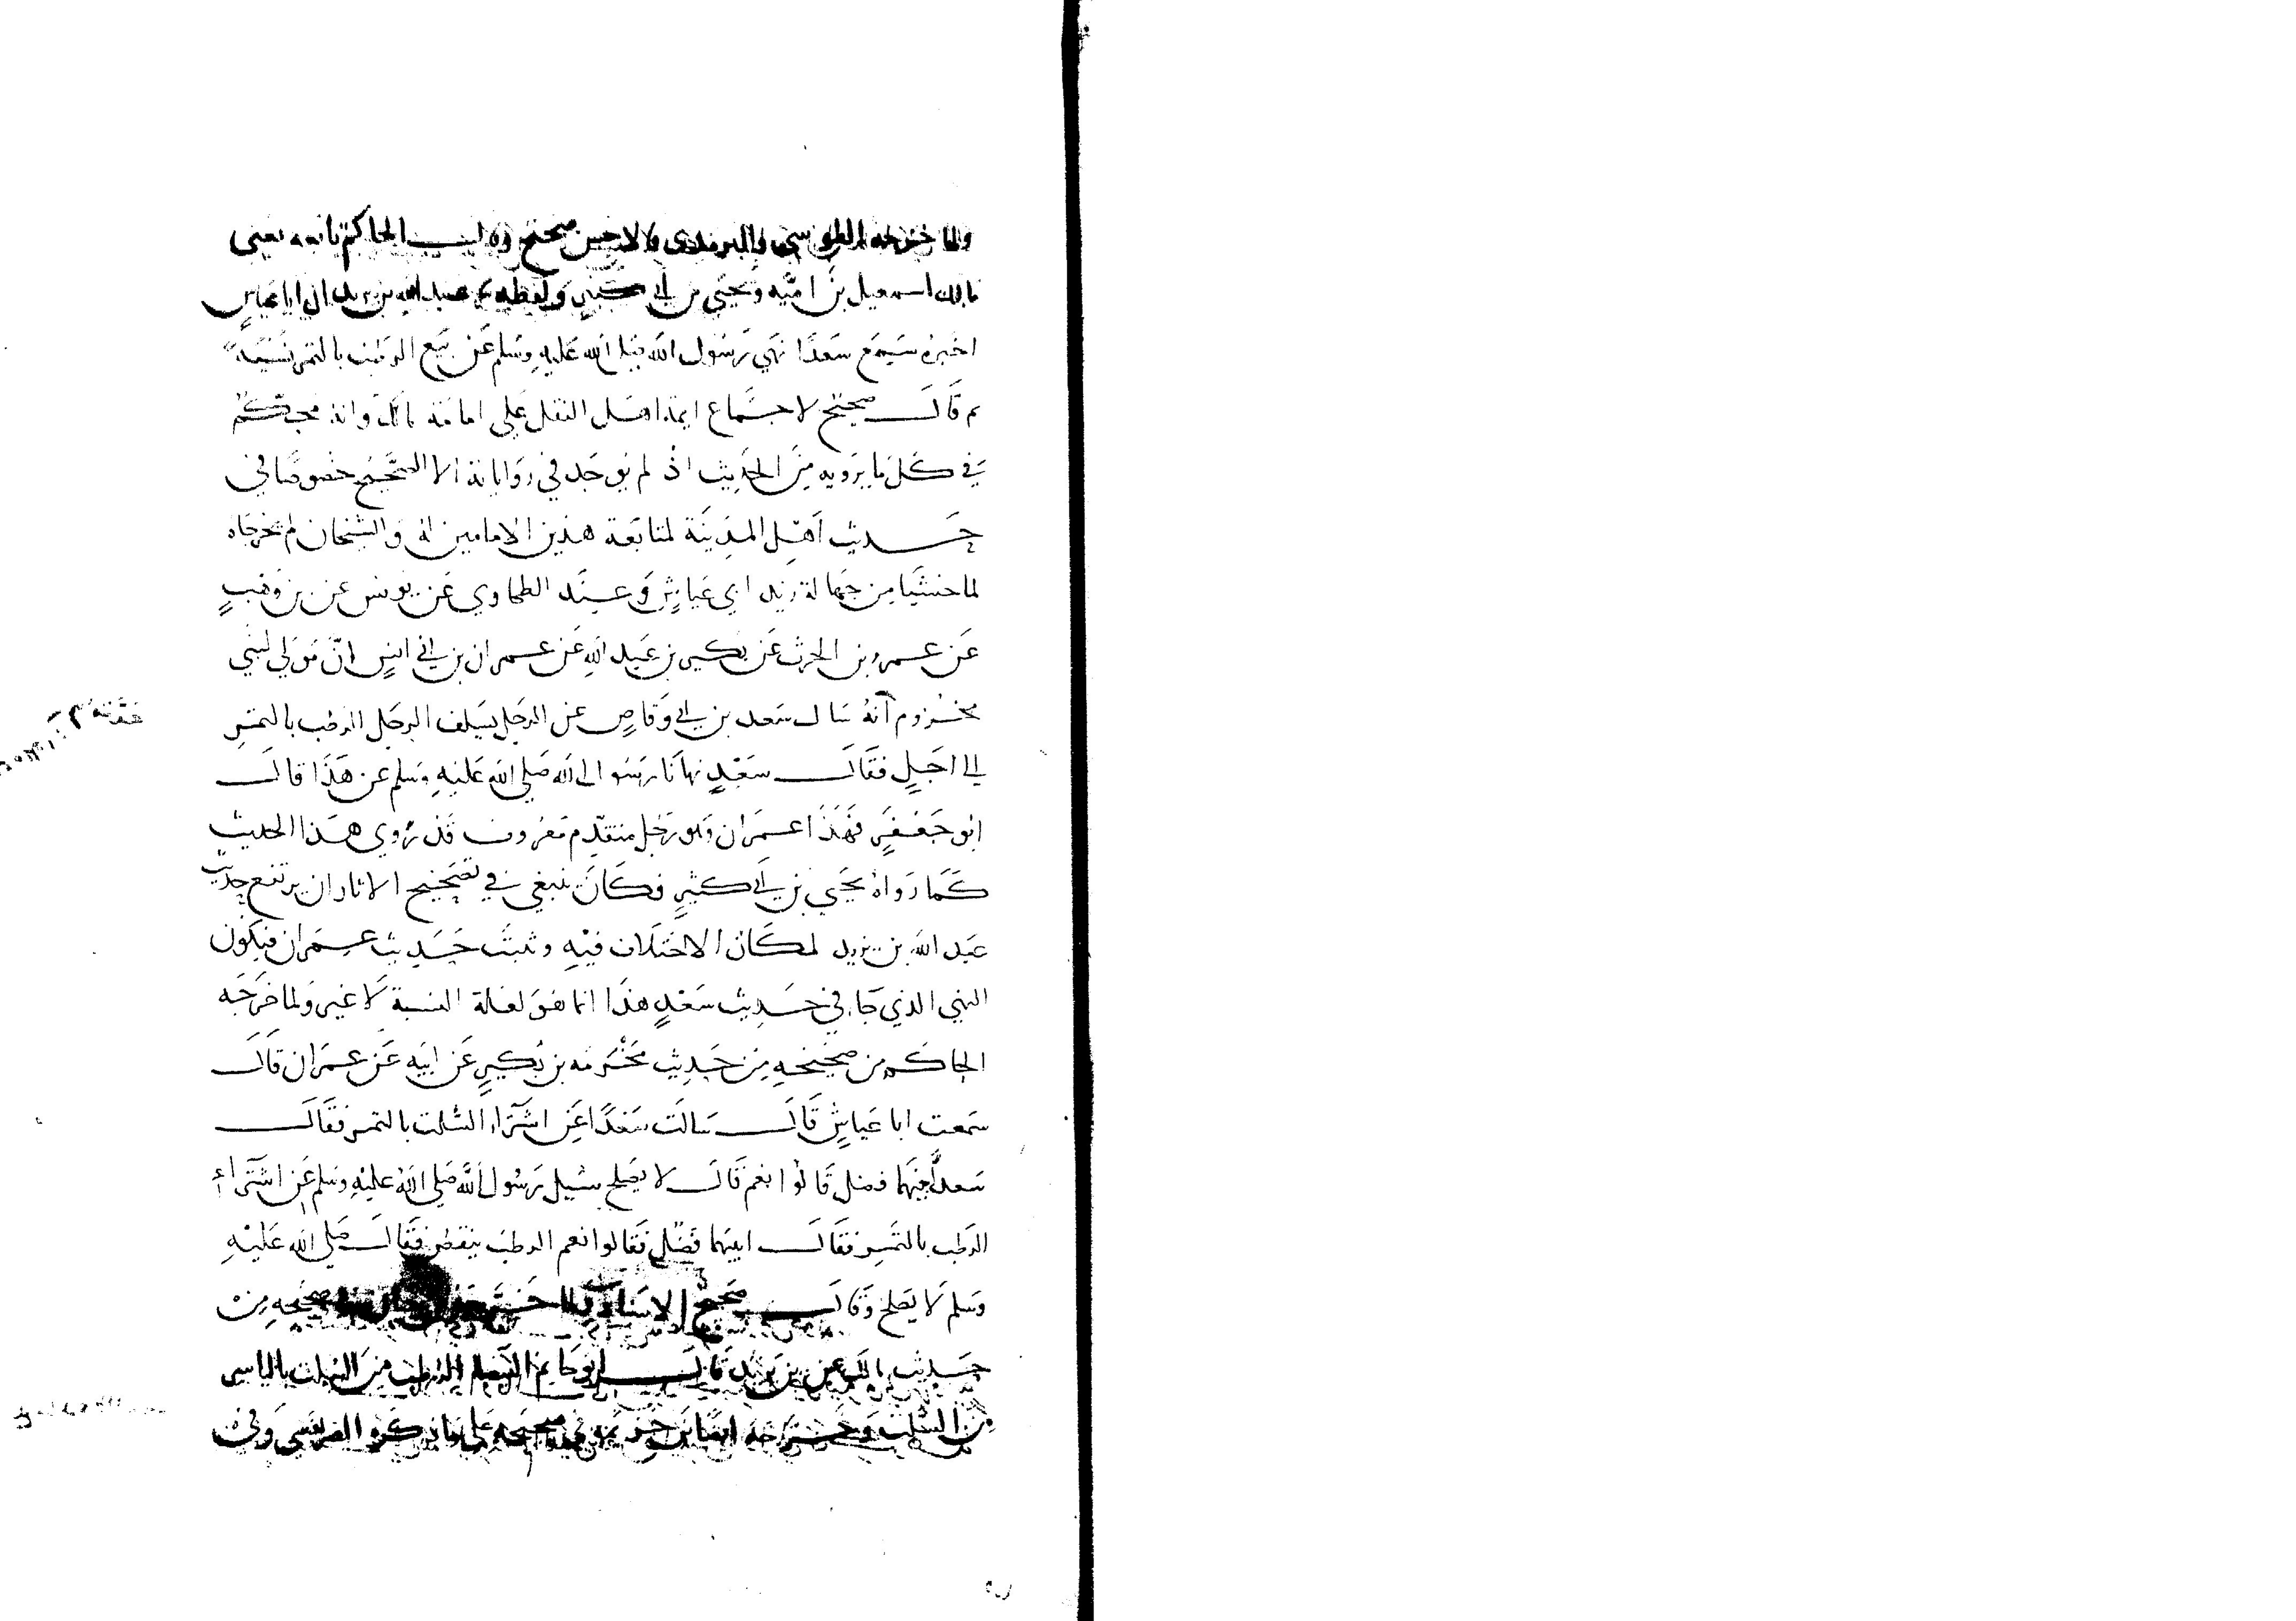 ولما خرجه الطوسي والترمذي قالا حسن صحيح وقال الحاكم تابعه يعني
مالك اسمعيل بن امية ويحيى بن ابي كثير ولفظه عبد الله بن يزيد ان ابا عياش
اخبره سمع سعدا نهى رسول الله صلى الله عليه وسلم عن بيع الرطب بالتمر نسيئة
ثم قال صحيح لاجماع ايمة اهل النقل على امامة مالك وانه محكم
في كل ما يرويه من الحديث اذ لم يوجد في رواياته الا الصحيح خصوصا في
حديث اهل المدينة لمتابعة هذين الامامين له والشيخان لم يخرجاه
لما خشيا من جهالة زيد ابي عياش وعند الطحاوي عن يونس عن بن وهب
عن عمرو بن الحرث عن بكير بن عبد الله عن عمران بن ابي انس ان مولى لبني
مخزوم انه سال سعد بن ابي وقاص عن الرجل يسلف الرجل الرطب بالتمر
الى اجل فقال سعد نهانا رسول الله صلى الله عليه وسلم عن هذا قال
ابو جعفر فهذا عمران وهو رجل متقدم معروف قد روى هذا الحديث
كما رواه يحيى بن ابي كثير فكان ينبغي في تصحيح الاثار ان يرتفع حديث
عبد الله بن يزيد لمكان الاختلاف فيه وثبت حديث عمران فيكون
النهي الذي جا في حديث سعد هذا انما هو لعلة النسية لا غير ولما خرجه
الحاكم من صحيحه من حديث مخرمه بن بكير عن ابيه عن عمران قال
سمعت ابا عياش قال سالت سعدا عن اشتراء السلت بالتمر فقال
سعد افيهما فضل قالوا نعم قال لا يصلح سيل رسول الله صلى الله عليه وسلم عن اشتراء
الرطب بالتمر فقال ابينهما فضل فقالوا نعم الرطب ينقص فقال صلى الله عليه
وسلم لا يصلح وقال صحيح الاسناد ولما خرجه صحيحه من
حديث مالك عن بن يزيد قال ابو حاتم البيضا الرطب من السلت باليابس
من السلت وخرجه ايضا بن خزيمة في صحيحه على ما ذكره الضريفيني وفي